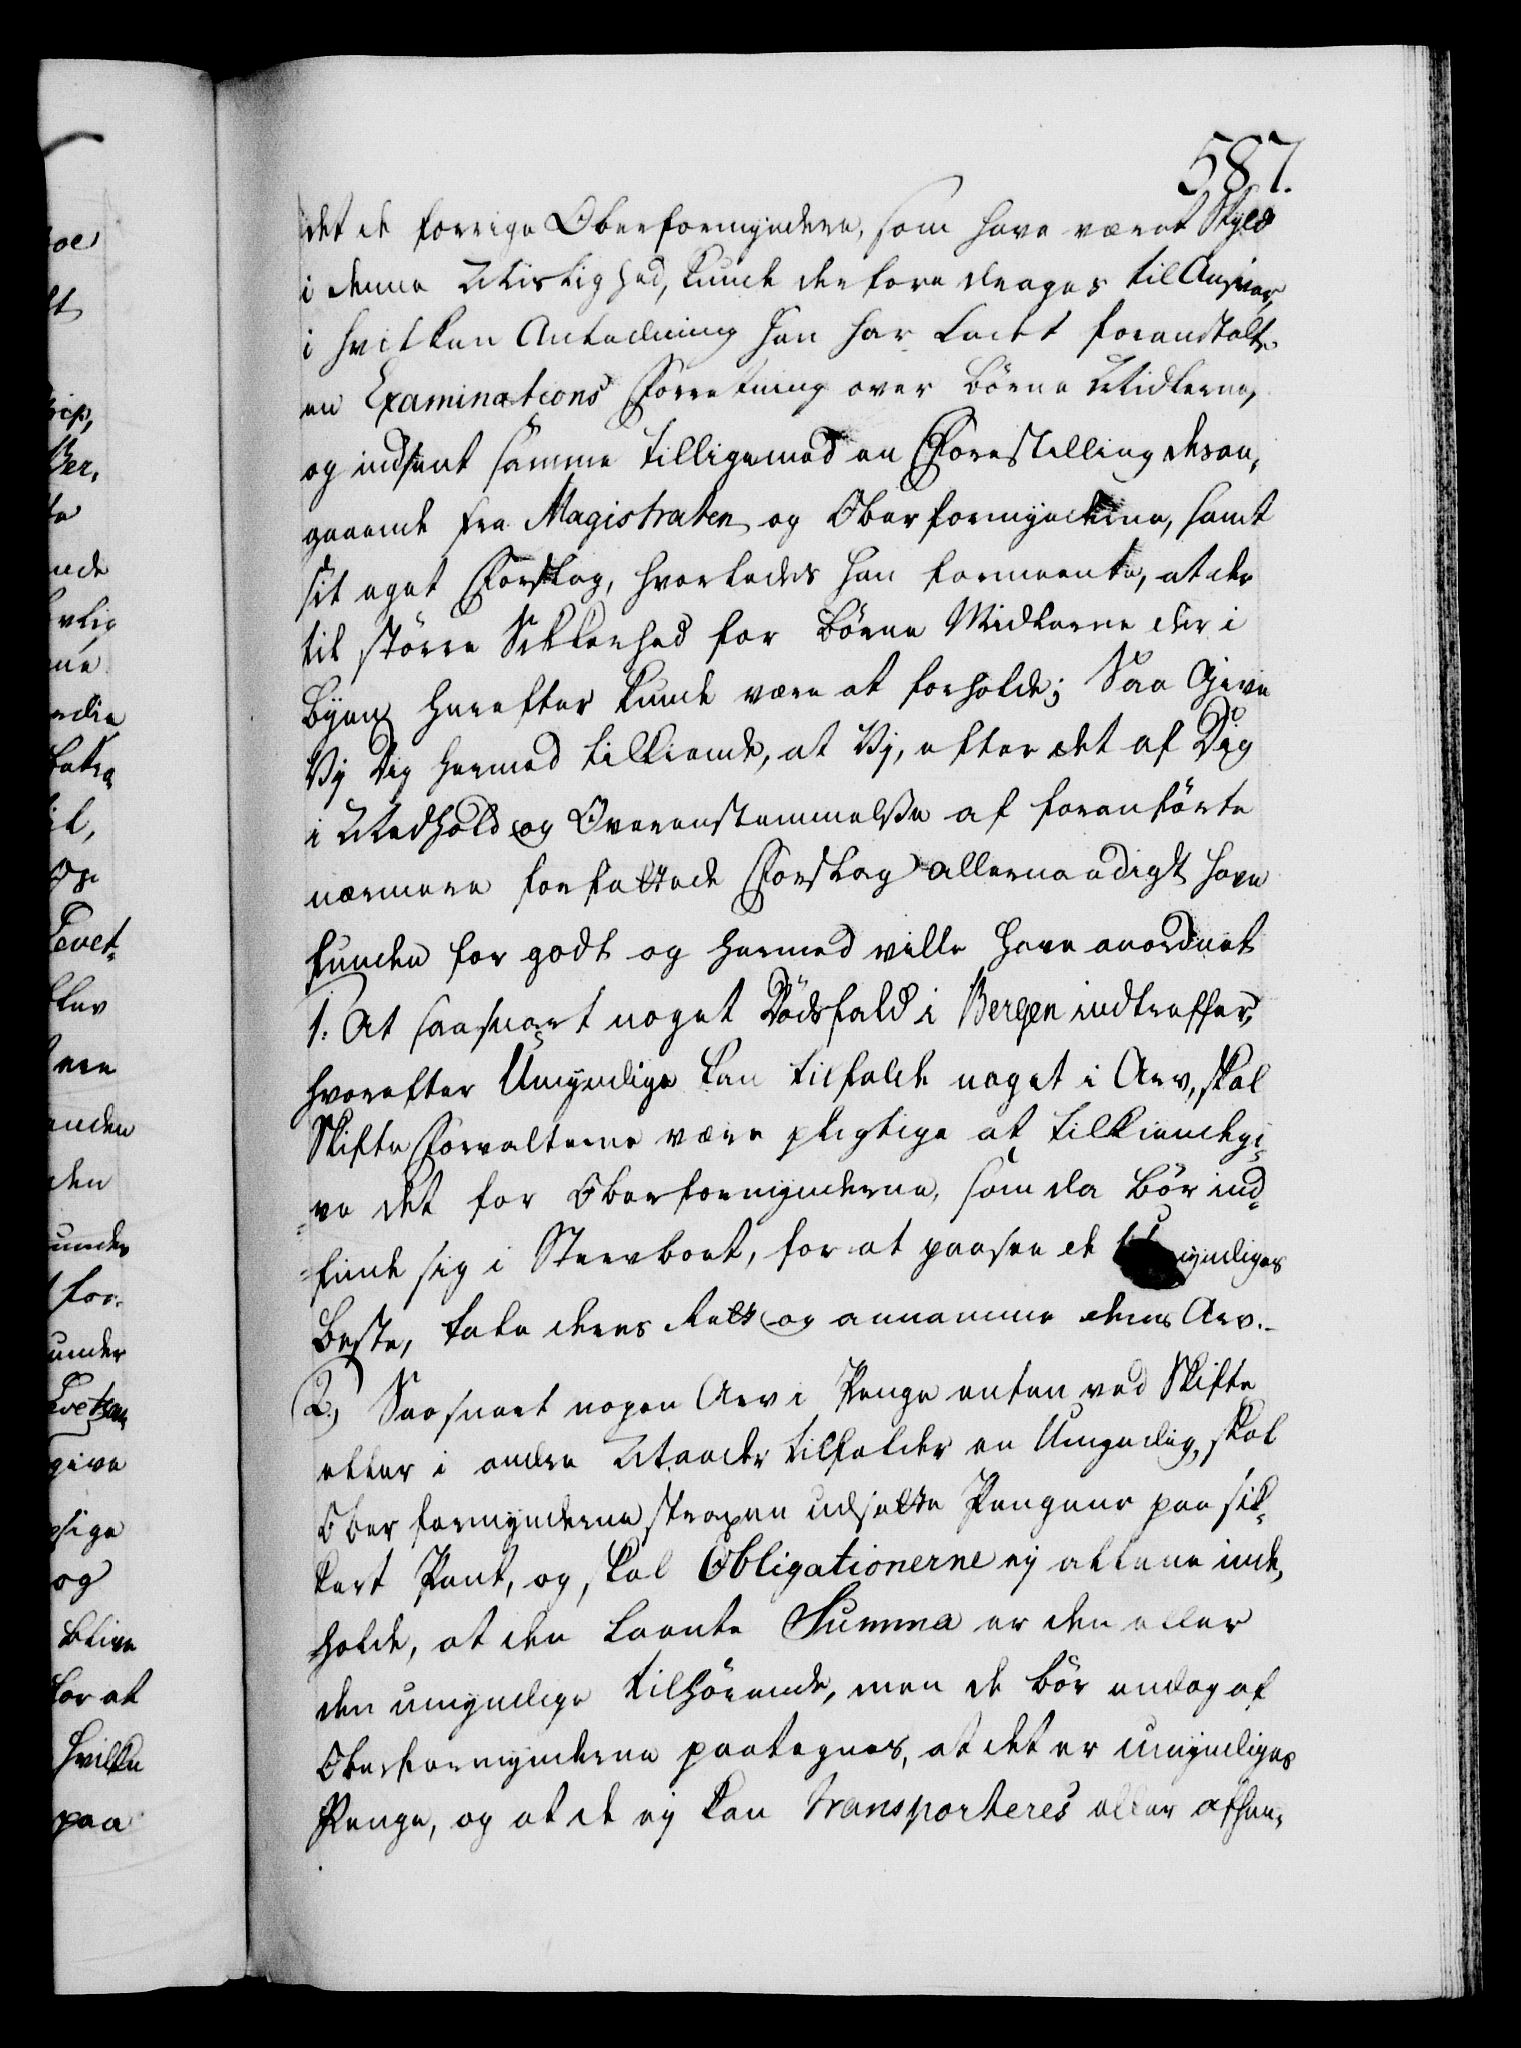 587.
det de forrige Oberformyndere, som have været Skyld
i denne Mislighed, kunde derfore drages til Ansvar,
i hvilken Anledning han har ladet foranstalte
en Examinations Forretning over Börne Midlerne,
og indsent samme tilligemed en Forestilling desan,
gaaende fra Magistraten og Oberformynderne, samt
sit eget Forslag, hvorledes han formeente, at der
til större Sikkerhed for Börne Midlerne der i
Byen herefter kunde være at forholde; Saa Give
Vy Dig hermed tilkiende, at Vy, efter det af Dig
i Medhold og Overenstemmelße af foranförte
nærmere forfattede Forslag allernaadigst have
funden for godt og hermed ville have anordnet
1. At saasnart noget Dödsfald i Bergen indtreffer,
hvorefter Umyndige kan tilfalde noget i Arv, skal
Skifte Forvalterne være pligtige at tilkiendegi,
ve det for Oberformynderne, som da bör ind,
finde sig i Stervboet, for at paasee de Umyndiges
Beste, tale deres Rett og annamme deres Arv.-
2.) Saasnart nogen Arv i Penge enten ved Skifte
eller i andre Maader tilfalder en Umyndig, skal
Oberformynderne straxen udsette Pengene paa sik,
kert Pant, og skal Obligationerne ej allene inde,
holde, at den laante Summa er den eller
den umyndige tilhörende, men de bör endog af
Oberformynderne paategnes, at det er umyndiges
Penge, og at de ej kan transporteres eller afhæn,